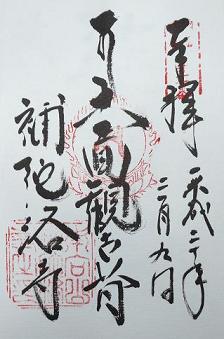 奉拝 平成二十年
二月九日
十一面観世音
補陀洛寺